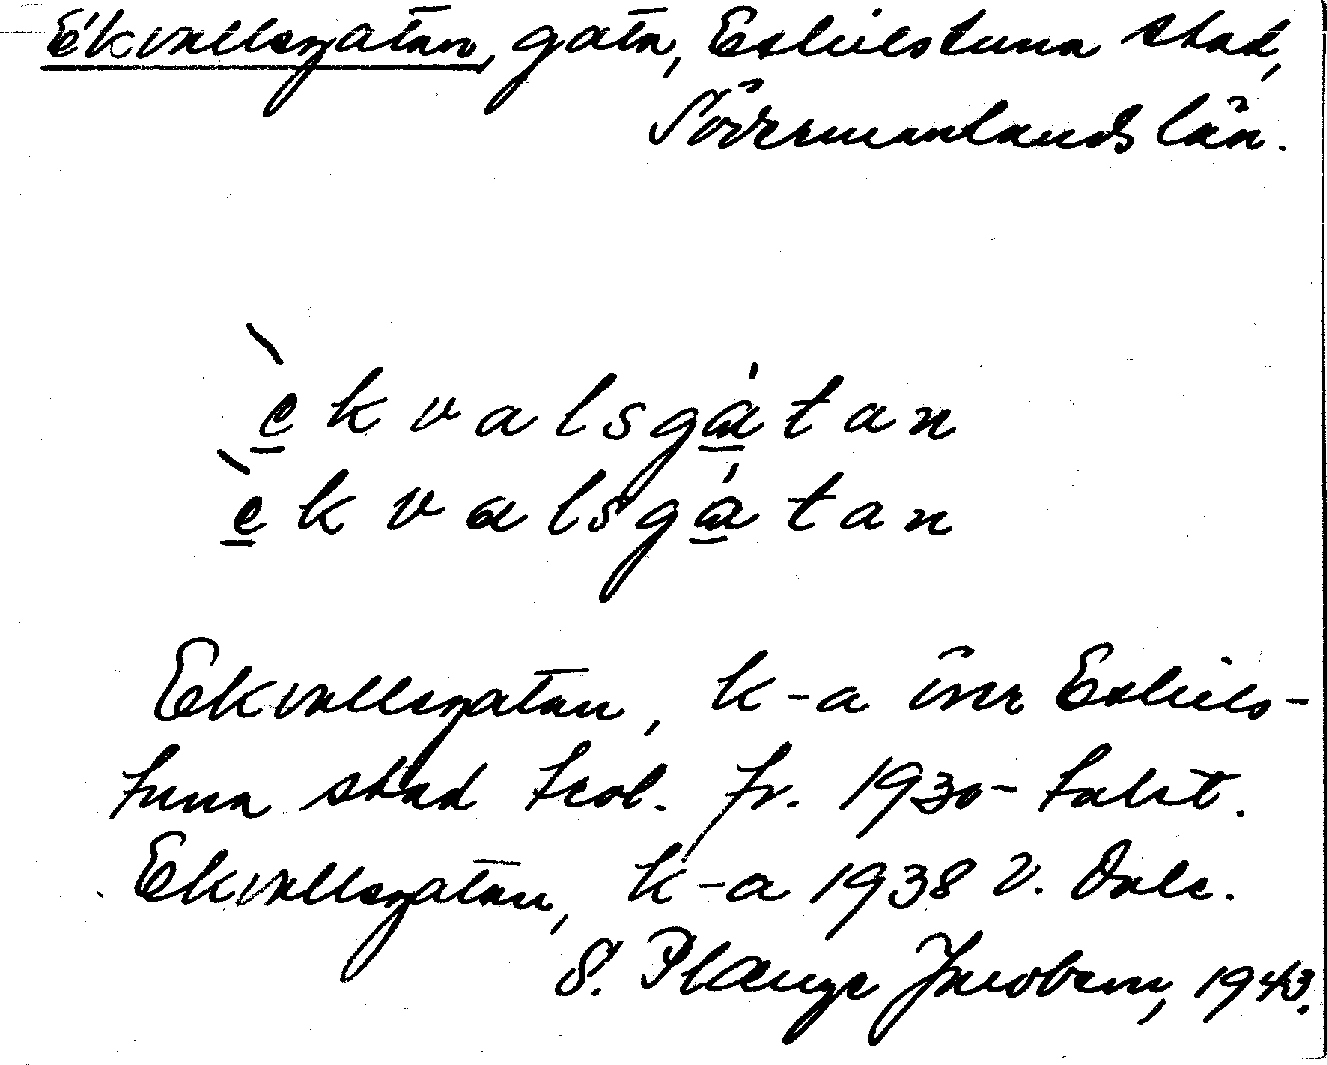 Ékvallsgatan, gata, Eskilstuna stad,
Södermanlands län.
èkvalsgátan
èkvalsgátan
Ekvallsgatan, k-a över Eskils-
tuna stad trol. fr. 1930-talet.
Ekvallsgatan, k-a 1938 v. Dale.
S. Plænge Jacobson, 1943.